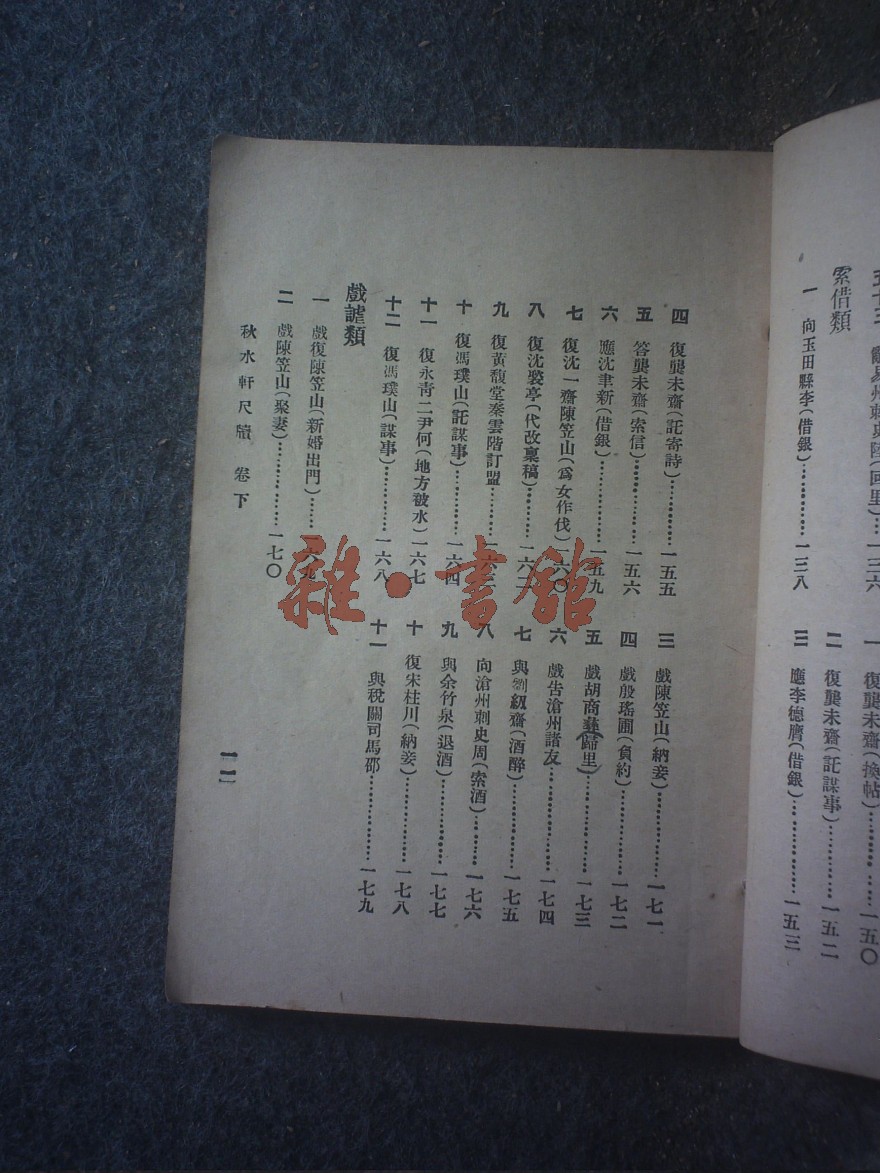 索借類
一 向玉田縣李（借銀）………一三八
一 復龔未齋（換帖）………一五〇
二 復龔未齋（託謀事）………一五二
三 應李德膺（借銀）………一五三
四 復龔未齋（託寄詩）………一五五
五 答龔未齋（索信）………一五六
六 應沈聿新（借銀）………一五九
七 復沈一齋陳笠山（爲女作伐）一六〇
八 復沈褧亭（代改稟稿）………一六二
九 復黃馥堂秦雲階訂盟………一六三
十 復馮璞山（託謀事）………一六四
十一 復永靑二尹何（地方被水）一六七
十二 復馮璞山（謀事）………一六八
戲謔類
一 戲復陳笠山（新婚出門）……一六九
二 戲陳笠山（聚妻）………一七〇
三 戲陳笠山（納妾）………一七一
四 戲殷瑤圃（負約）………一七二
五 戲胡商彝（歸里）………一七三
六 戲告滄州諸友………一七四
七 與劉級齋（酒醉）………一七五
八 向滄州刺史周（索酒）………一七六
九 與余竹泉（退酒）………一七七
十 復宋柱川（納妾）………一七八
十一 與稅關司馬邵………一七九
秋水軒尺牘 卷下
一一
雜·書館